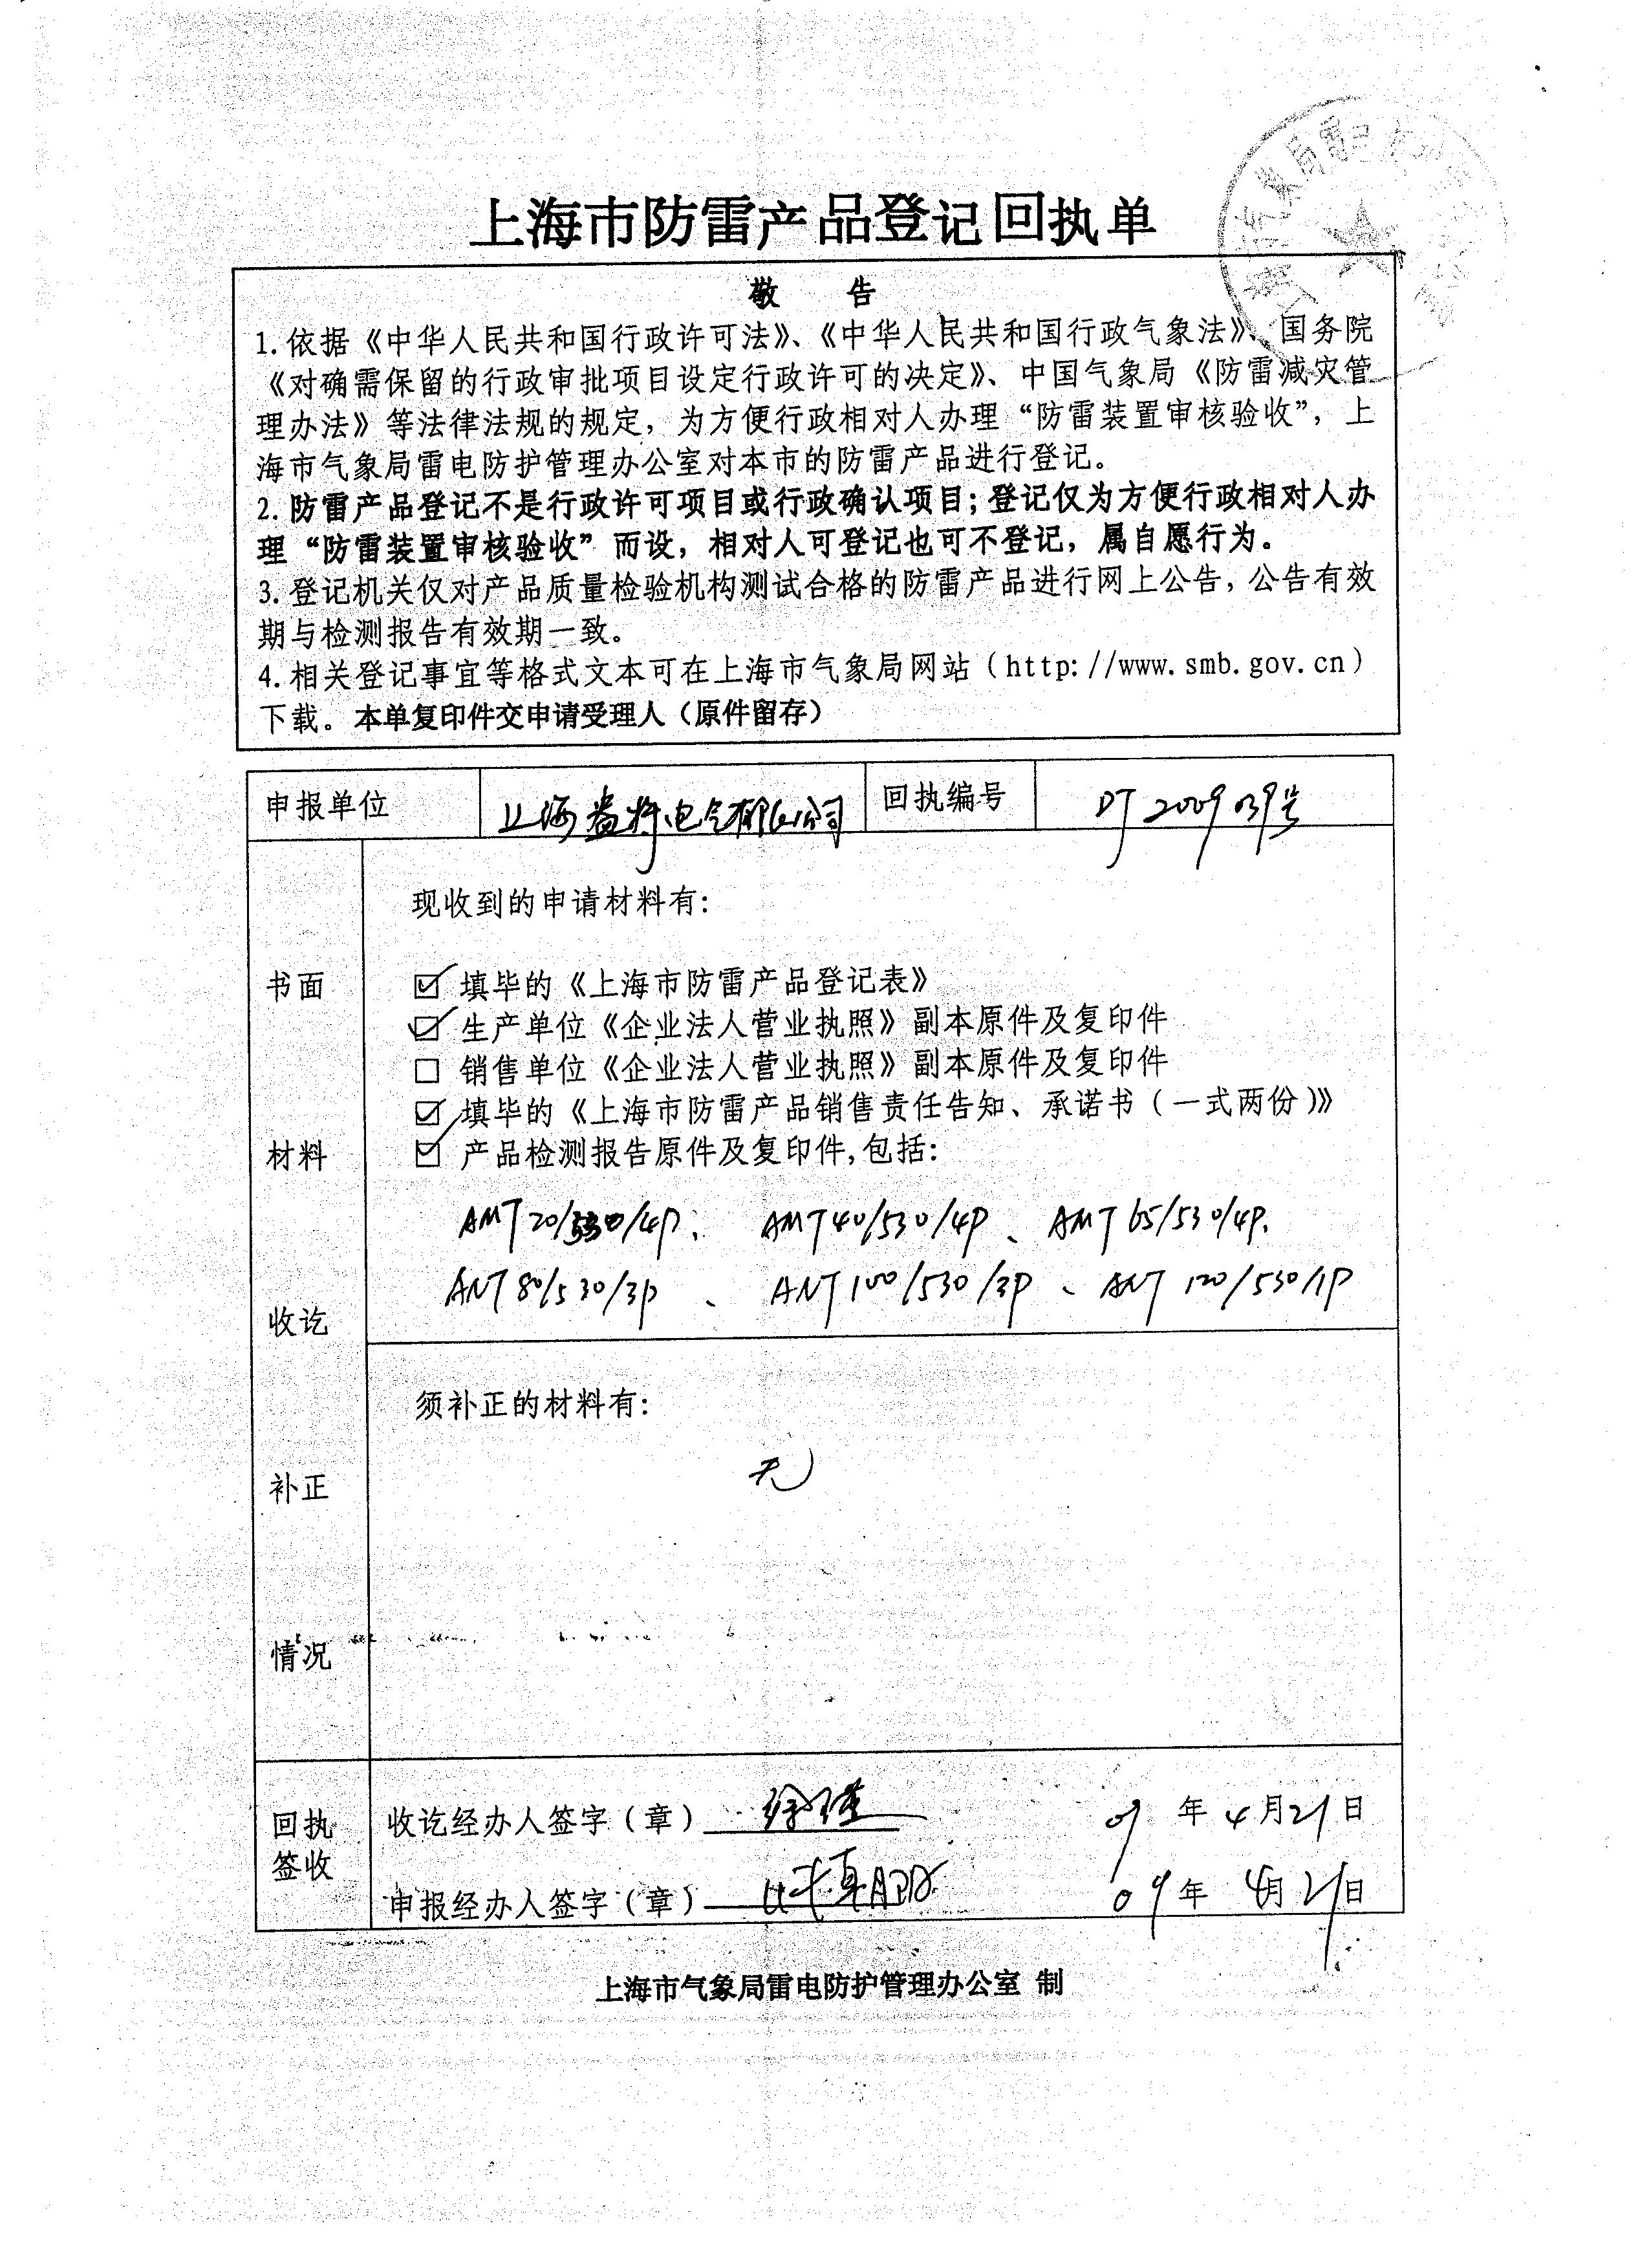 上海市防雷产品登记回执单
敬 告
1.依据《中华人民共和国行政许可法》、《中华人民共和国行政气象法》、国务院
《对确需保留的行政审批项目设定行政许可的决定》、中国气象局《防雷减灾管
理办法》等法律法规的规定，为方便行政相对人办理“防雷装置审核验收”，上
海市气象局雷电防护管理办公室对本市的防雷产品进行登记。
2.防雷产品登记不是行政许可项目或行政确认项目；登记仅为方便行政相对人办
理“防雷装置审核验收”而设，相对人可登记也可不登记，属自愿行为。
3.登记机关仅对产品质量检验机构测试合格的防雷产品进行网上公告，公告有效
期与检测报告有效期一致。
4.相关登记事宜等格式文本可在上海市气象局网站（http://www.smb.gov.cn）
下载。本单复印件交申请受理人（原件留存）
申报单位 上海 电气有限公司 回执编号 DJ2009039号
书面
材料
收讫
补正
情况
现收到的申请材料有：
☑ 填毕的《上海市防雷产品登记表》
☑ 生产单位《企业法人营业执照》副本原件及复印件
□ 销售单位《企业法人营业执照》副本原件及复印件
☑ 填毕的《上海市防雷产品销售责任告知、承诺书（一式两份）》
☑ 产品检测报告原件及复印件，包括：
AMT 20/530/4P、 AMT 40/530/4P、 AMT 65/530/4P、
ANT 80/530/3P 、 ANT 100/530/3P 、 ANT 120/530/1P
须补正的材料有：
无
回执
签收
收讫经办人签字（章） 09 年 4 月 21 日
申报经办人签字（章） 09 年 4 月 21 日
上海市气象局雷电防护管理办公室 制